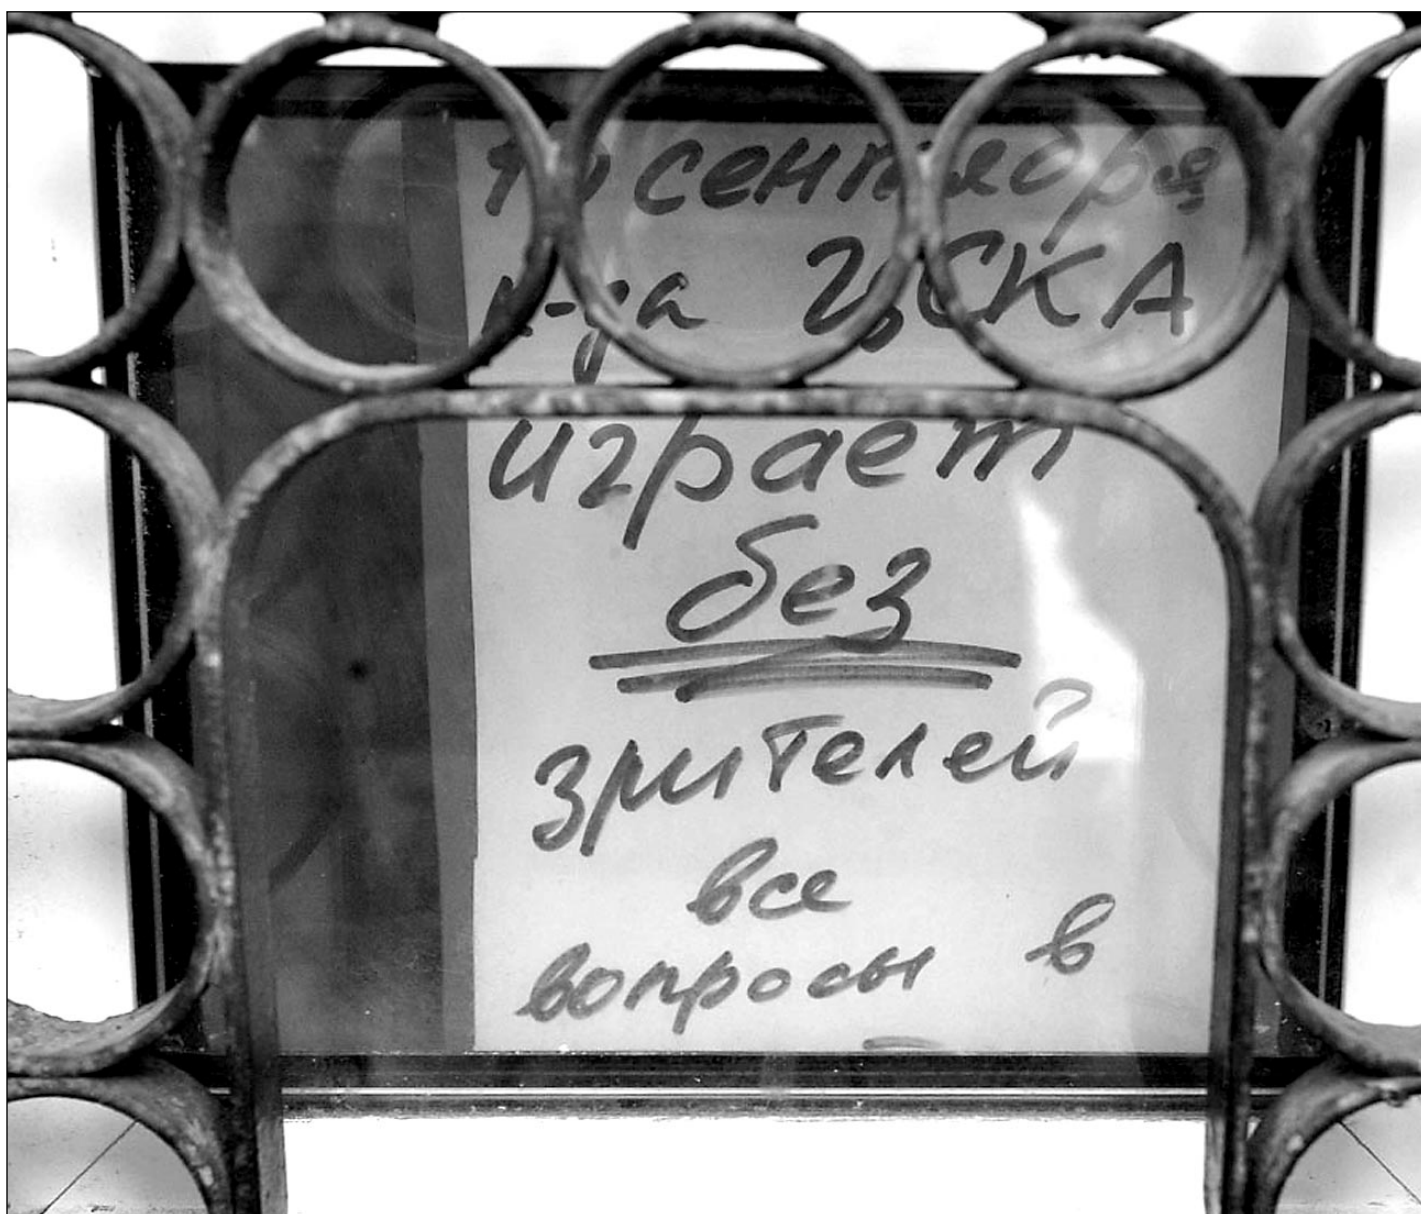 10 сентября
к-да ЦСКА
играет
без
зрителей
все
вопросы в